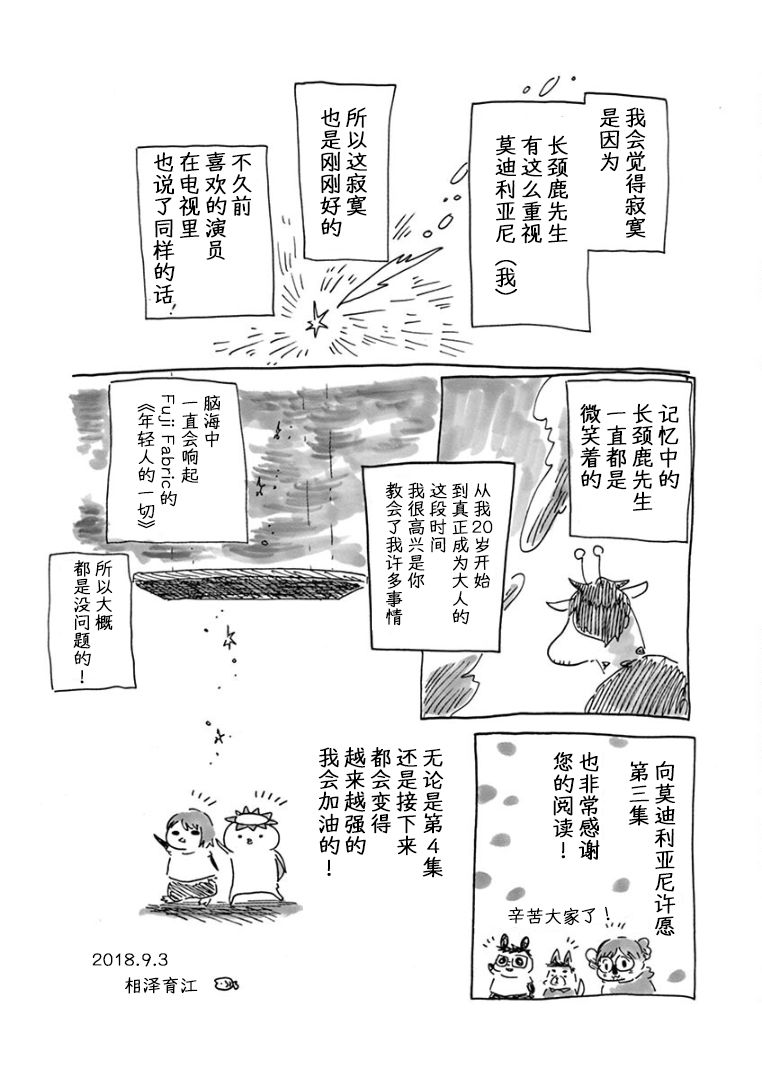 我会觉得寂寞
是因为
长颈鹿先生
有这么重视
莫迪利亚尼（我）
所以这寂寞
也是刚刚好的
不久前
喜欢的演员
在电视里
也说了同样的话，
记忆中的
长颈鹿先生
一直都是
微笑着的
从我20岁开始
到真正成为大人的
这段时间
我很高兴是你
教会了我许多事情
脑海中
一直会响起
Fuji Fabric的
《年轻人的一切》
所以大概
都是没问题的！
向莫迪利亚尼许愿
第三集
也非常感谢
您的阅读！
辛苦大家了！
无论是第4集
还是接下来
都会变得
越来越强的
我会加油的！
2018.9.3
相泽育江